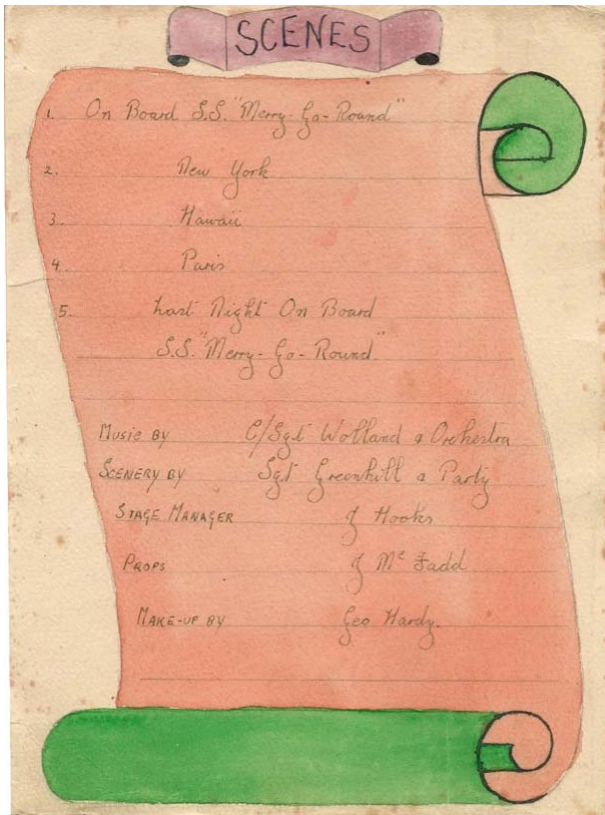 SCENES
1. On Board S.S. "Merry-Go-Round"
2. New York
3. Hawaii
4. Paris
5. Last Night On Board
S.S. "Merry-Go-Round"
Music by C/Sgt Wolland & Orchestra
Scenery by Sgt Greenhill & Party
Stage Manager J Hooks
Props J Mc Fadd
Make-up by Geo Hardy.